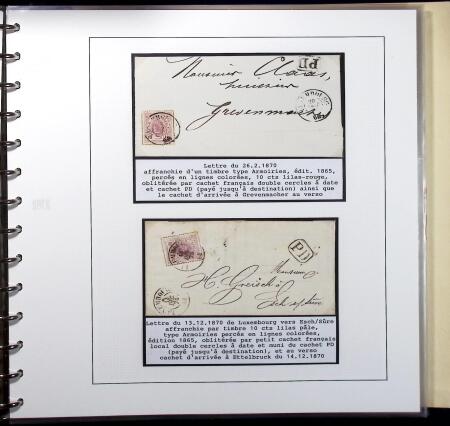 Monsieur Claas,
PD
Grevenmach
Lettre du 26.2.1870
affranchie d'un timbre type Armoiries, édit. 1865,
percés en lignes colorées, 10 cts lilas-rouge,
oblitérée par cachet français double cercles à date
et cachet PD (payé jusqu'à destination) ainsi que
le cachet d'arrivée à Grevenmacher au verso
PD
Monsieur
H. Greisch à
Esch s/ Sûre
Lettre du 13.12.1870 de Luxembourg vers Esch/Sûre
affranchie par timbre 10 cts lilas pâle,
type Armoiries percés en lignes colorées,
édition 1865, oblitérée par petit cachet français
local double cercles à date et muni du cachet PD
(payé jusqu'à destination), et au verso
cachet d'arrivée à Ettelbruck du 14.12.1870